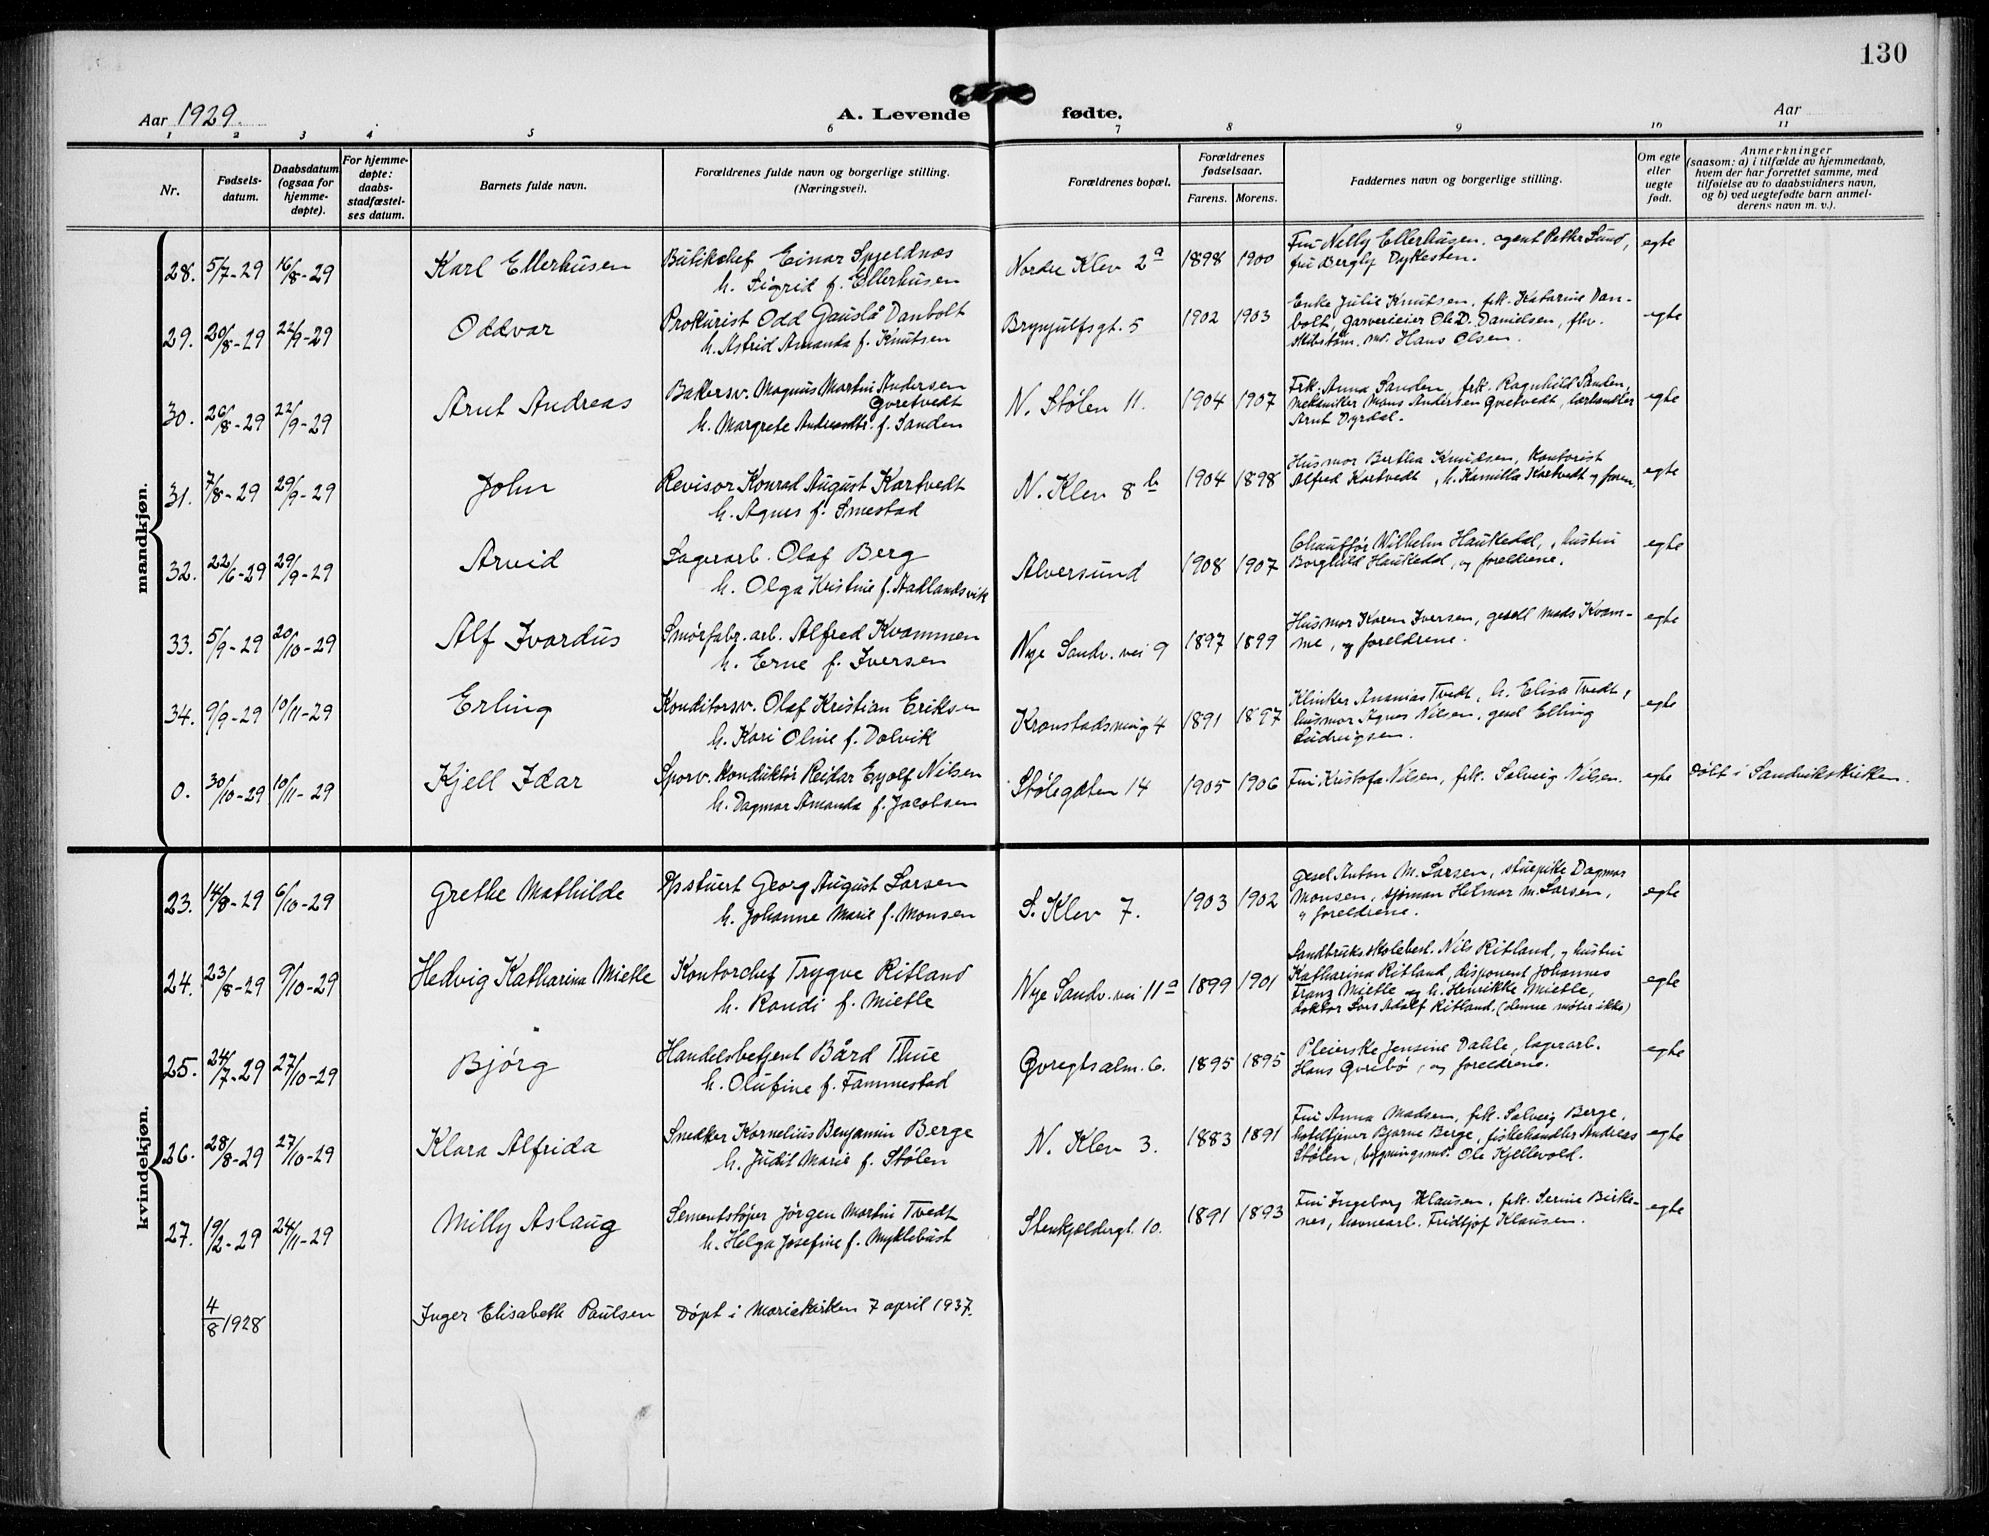 130
Aar 1929.
A. Levende fødte.
Aar
1 2 3 4 5 6 7 8 9 10 11
Nr.
Fødsels-
datum.
Daabsdatum
(ogsaa for
hjemme-
døpte).
For hjemme-
døpte:
daabs-
stadfæstel-
ses datum.
Barnets fulde navn.
Forældrenes fulde navn og borgerlige stilling.
(Næringsvei).
Forældrenes bopæl.
Forældrenes
fødselsaar.
Farens. Morens.
Faddernes navn og borgerlige stilling.
Om egte
eller
uegte
født.
Anmerkninger
(saasom: a) i tilfælde av hjemmedaab,
hvem der har forrettet samme, med
tilføielse av to daabsvidners navn,
og b) ved uegtefødte barn anmel-
derens navn m. v.).
mandkjøn.
28. 5/7-29 16/8-29 Karl Ellerhusen
Butikchef Einar Spjeldnæs
h. Sigrid f. Ellerhusen
Nordre Klev 2a 1898 1900
Fru Nelly Ellerhusen, agent Petter Lund,
fru Bergly Dykesten.
egte
29. 20/8-29 22/9-29 Oddvar
Prokurist Odd Gauslå Danbolt
h. Astrid Amanda f. Knutsen
Brynjulfsgt. 5 1902 1903
Enke Julie Knutsen, frk. Katarine Dan-
bolt, garverieier Ole D. Danielsen, fhv.
skibstøm. md. Hans Olsen.
egte
30. 26/8-29 22/9-29 Arnt Andreas
Bakersv. Magnus Martin Andersen
Qvretvedt
h. Margrete Andreasdtr. f. Sanden
N. Stølen 11. 1904 1907
Frk. Anna Sanden, frk. Ragnhild Sanden,
mekaniker Mons Andersen Qvretvedt, lærhandler
Arnt Dyrdal.
egte
31. 7/8-29 29/9-29 John
Revisor Konrad August Kartvedt
h. Agnes f. Smestad
N. Klev 8b 1904 1898
Husmor Bertha Knudsen, kontorist
Alfred Kartvedt, h. Kamilla Kartvedt og faren.
egte
32. 22/6-29 29/9-29 Arvid
Lagerarb. Olaf Berg
h. Olga Kristine f. Aadlandsvik
Alversund 1908 1907
Chauffør Wilhelm Haukedal, hustru
Borghild Haukedal, og foreldrene.
egte
33. 5/9-29 20/10-29 Alf Ivardus
Smørfabr. arb. Alfred Kvammen
h. Erne f. Iversen
Nye Sandv. vei 9 1897 1899
Husmor Karen Iversen, gesell Mads Kvam-
me, og foreldrene.
egte
34. 9/9-29 10/11-29 Erling
Konditorsv. Olaf Kristian Eriksen
h. Kari Oline f. Dolvik
Kronstadsveig 4 1891 1897
Klinker Ananias Tvedt, h. Elisa Tvedt,
husmor Agnes Nilsen, gesel Elling
Ludvigsen.
egte
0. 30/10-29 10/11-29 Kjell Idar
Sporv. konduktør Reidar Eyolf Nilsen
h. Dagmar Amanda f. Jacobsen
Stølegaten 14 1905 1906
Fru Kristofa Nilsen, frk. Solveig Nilsen.
egte
Døbt i Sandvikskirken.
kvindekjøn.
23. 14/8-29 6/10-29 Grethe Mathilde
Opstuert Georg August Larsen
h. Johanne Marie f. Monsen
S. Klev 7. 1903 1902
gesel Anton M. Larsen, stuepike Dagmar
Monsen, sjømann Helmar M. Larsen,
og foreldrene.
egte
24. 23/8-29 9/10-29 Hedvig Katharina Mietle
Kontorchef Trygve Ritland
h. Randi f. Mietle
Nye Sandv. vei 11a 1899 1901
Landbruksskolebest. Nils Ritland, og hustru
Katharina Ritland, disponent Johannes
Franz Mietle og h. Henrikke Mietle,
doktor Lars Adolf Ritland. (denne møter ikke)
egte
25. 24/7-29 27/10-29 Bjørg
Handelsbetjent Bård Thue
h. Olufine f. Tammestad
Qvregtsalm. 6. 1895 1895
Pleierske Jensine Dahle, lagerarb.
Hans Qvrebø, og foreldrene.
egte
26. 28/8-29 27/10-29 Klara Alfrida
Snedker Kornelius Benjamin Berge
h. Judit Marie f. Stølen
N. Klev 3. 1883 1891
Fru Anna Madsen, frk. Solveig Berge,
hoteltjener Bjarne Berge, fiskehandler Andreas
Stølen, bygningsmd. Ole Kjellevold.
egte
27. 19/2-29 24/11-29 Milly Aslaug
Sementstøper Jørgen Martin Tvedt
h. Helga Josefine f. Myklebust
Stenkjeldergt. 10. 1891 1893
Fru Ingeborg Klausen, frk. Serine Birke-
nes, havnearb. Fridtjof Klausen.
egte
4/8 1928 Inger Elisabeth Paulsen Døpt i Mariakirken 7 april 1937.